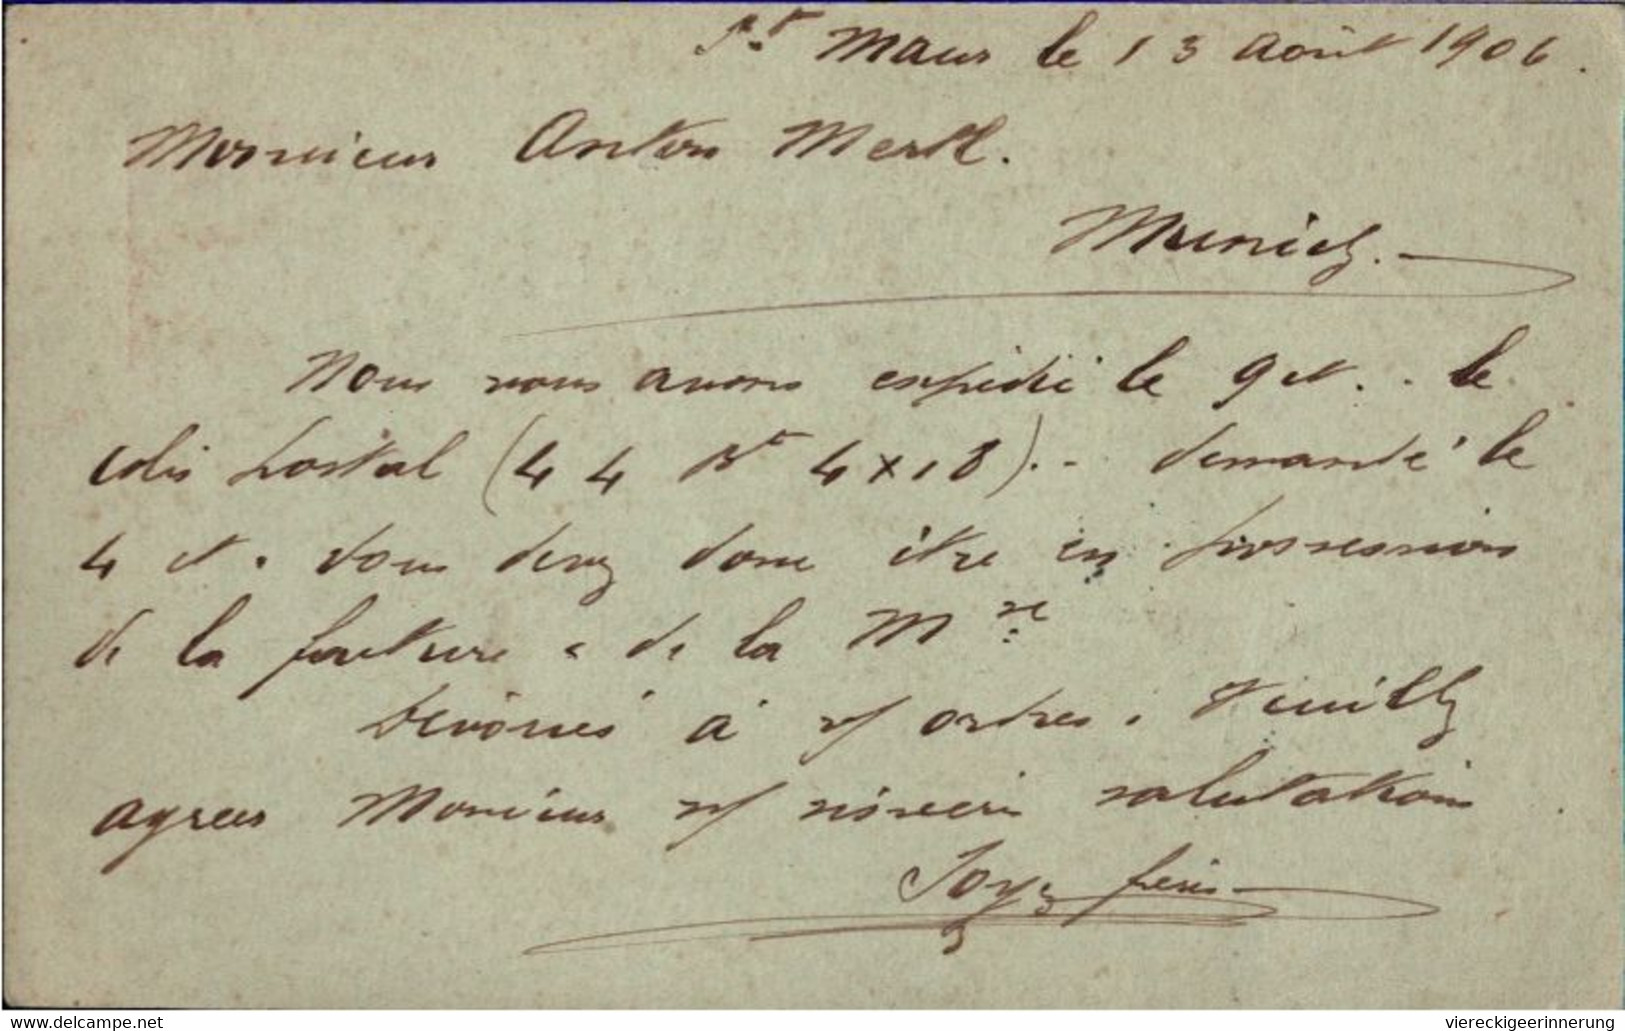 St Maur le 13 août 1906.
Monsieur Anton Merkl.
Munich.
Nous vous avons expédié le 9 ct. le
colis postal (44 Bt 4 x 18). demandé le
4 ct. vous devez donc être en possession
de la facture & de la Mse
Dévoués à v/ ordres. Veuillez
agréer Monsieur n/ sincères salutations
frères
www.delcampe.net
viereckigeerinnerung